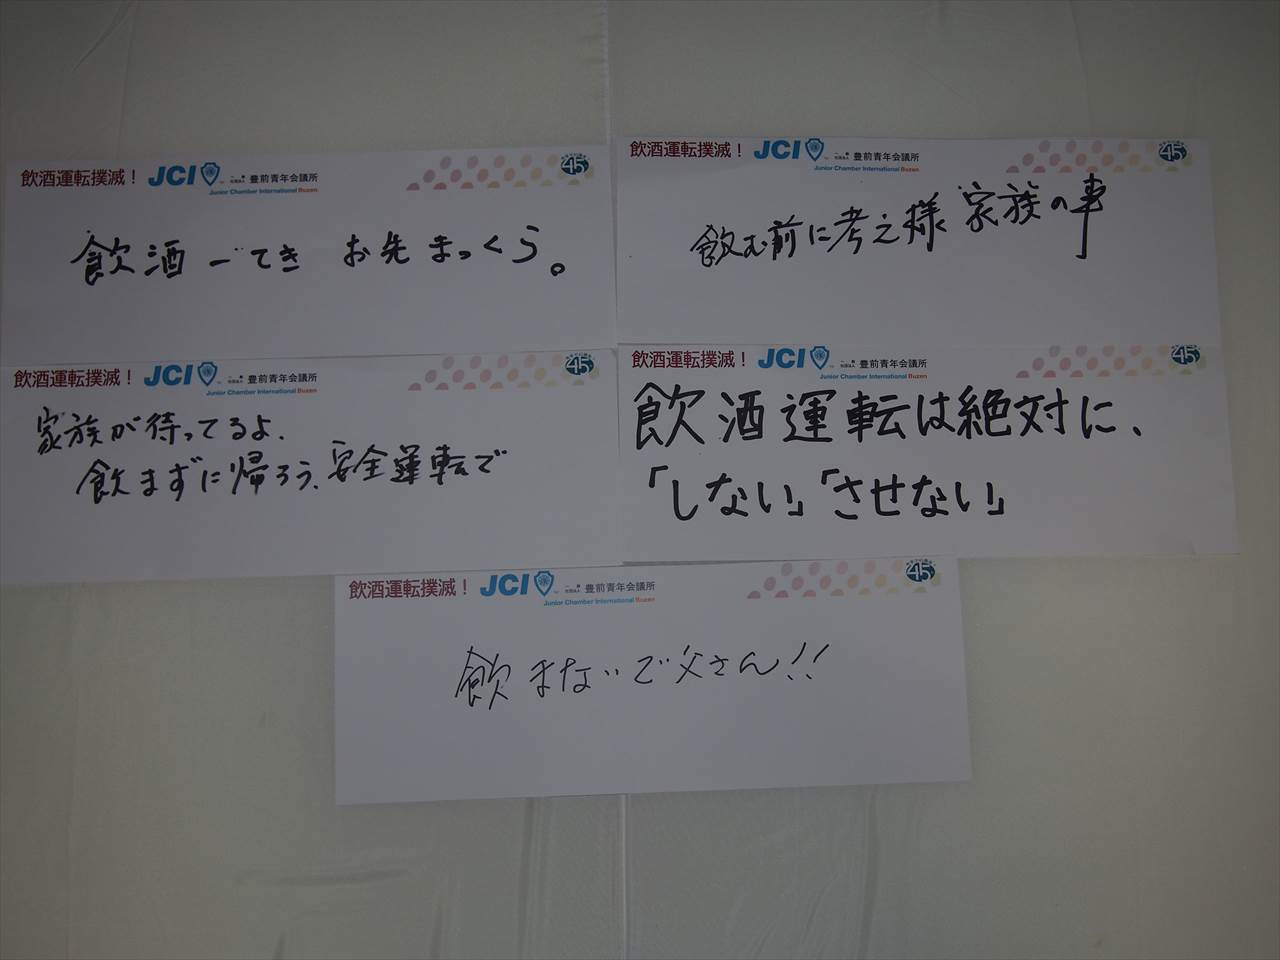 飲酒運転撲滅！ JCI 一般社団法人 豊前青年会議所
Junior Chamber International Buzen
45
飲酒一てき お先まっくら。
飲酒運転撲滅！ JCI 一般社団法人 豊前青年会議所
Junior Chamber International Buzen
45
飲む前に考え様 家族の事
飲酒運転撲滅！ JCI 一般社団法人 豊前青年会議所
Junior Chamber International Buzen
45
家族が待ってるよ、
飲まずに帰ろう、安全運転で
飲酒運転撲滅！ JCI 一般社団法人 豊前青年会議所
Junior Chamber International Buzen
45
飲酒運転は絶対に、
「しない」「させない」
飲酒運転撲滅！ JCI 一般社団法人 豊前青年会議所
Junior Chamber International Buzen
45
飲まないで父さん!!